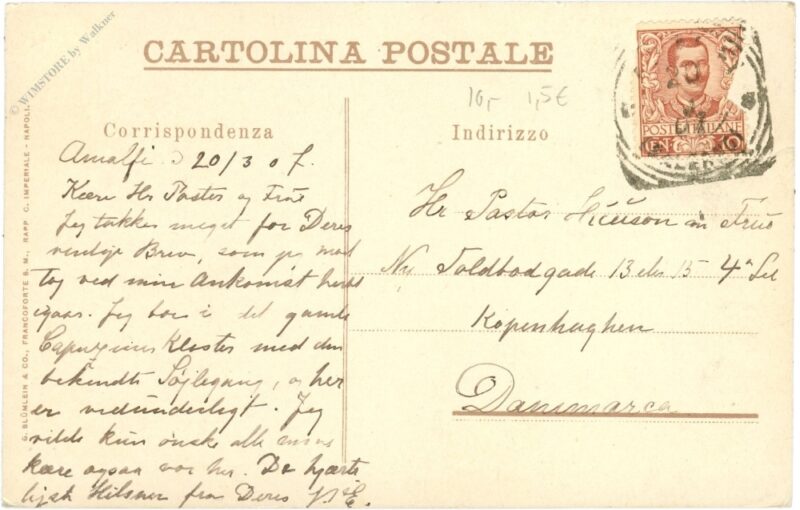 © WIMSTORE by Walkner
CARTOLINA POSTALE
10,- 1,5€
Corrispondenza
Indirizzo
POSTE ITALIANE
20
G. BLÜMLEIN & CO., FRANCOFORTE S. M., RAPP. C. IMPERIALE - NAPOLI.
Amalfi d 20/3 07.
Kære Hr Pastor og Frue
Jeg takker meget for Deres
venlige Brev, som jeg mod
tog ved min Ankomst hertil
igaar. Jeg bor i det gamle
Capuziner Kloster med den
bekendte Søjlegang, og her
er vidunderligt. Jeg
vilde kun ønske alle mine
kære ogsaa var her. De hjærte
ligste Hilsner fra Deres
Hr Pastor og Frue
Ny Toldbodgade 13 eller 15 4de Sal
Kopenhaghen
Danimarca